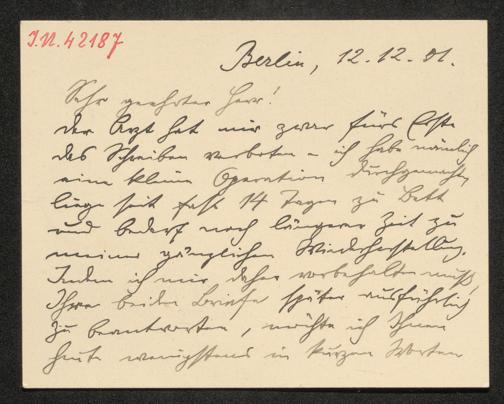 I.N. 42187
Berlin, 12.12.01.
Sehr geehrter Herr!
der Arzt hat mir zwar fürs Erste
das Schreiben verboten – ich habe nämlich
eine kleine Operation durchgemacht,
liege seit fast 14 Tagen zu Bett
und bedarf noch längerer Zeit zu
meiner gänzlichen Wiederherstellung.
Indem ich mir daher vorbehalten muß,
Ihre beiden Briefe später ausführlich
zu beantworten, möchte ich Ihnen
heute wenigstens in kurzen Worten